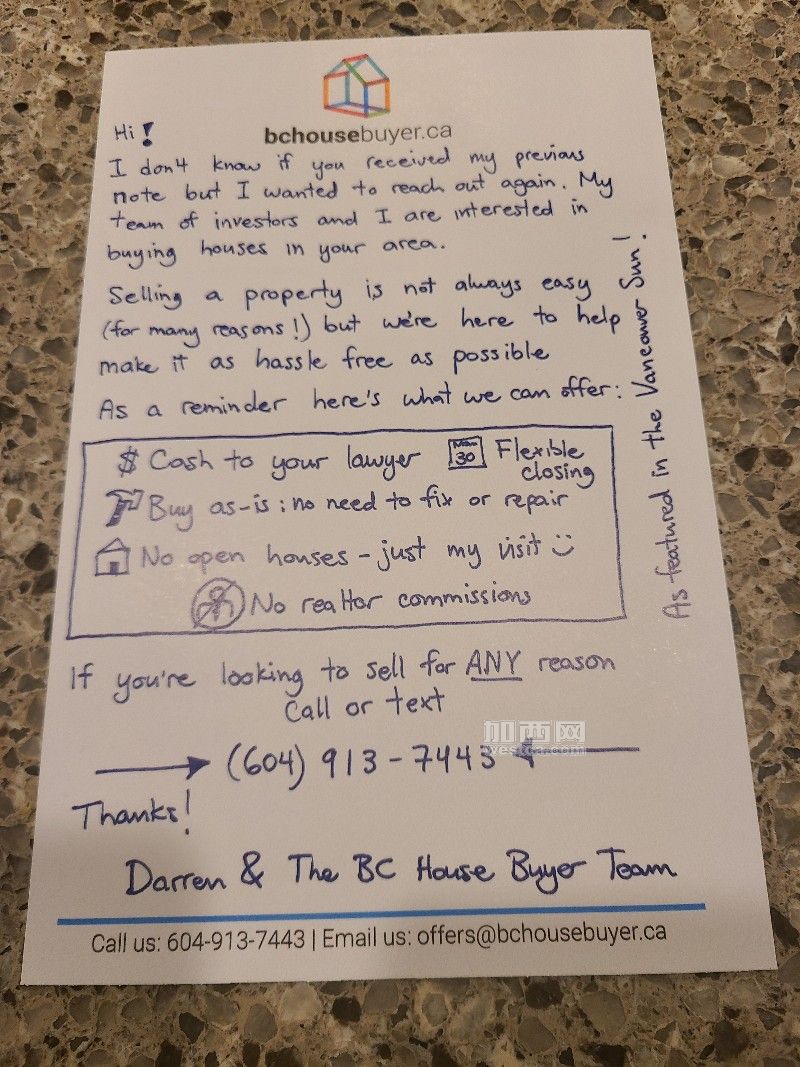 bchousebuyer.ca
Hi!
I don't know if you received my previous
note but I wanted to reach out again. My
team of investors and I are interested in
buying houses in your area.
Selling a property is not always easy
(for many reasons!) but we're here to help
make it as hassle free as possible
As a reminder here's what we can offer:
$ Cash to your lawyer
Mar 30
Flexible
closing
Buy as-is: no need to fix or repair
No open houses - just my visit :)
No realtor commissions
As featured in the Vancouver Sun!
If you're looking to sell for ANY reason
Call or text
(604) 913-7443
加西网
westca.com
Thanks!
Darren & The BC House Buyer Team
Call us: 604-913-7443 | Email us: offers@bchousebuyer.ca